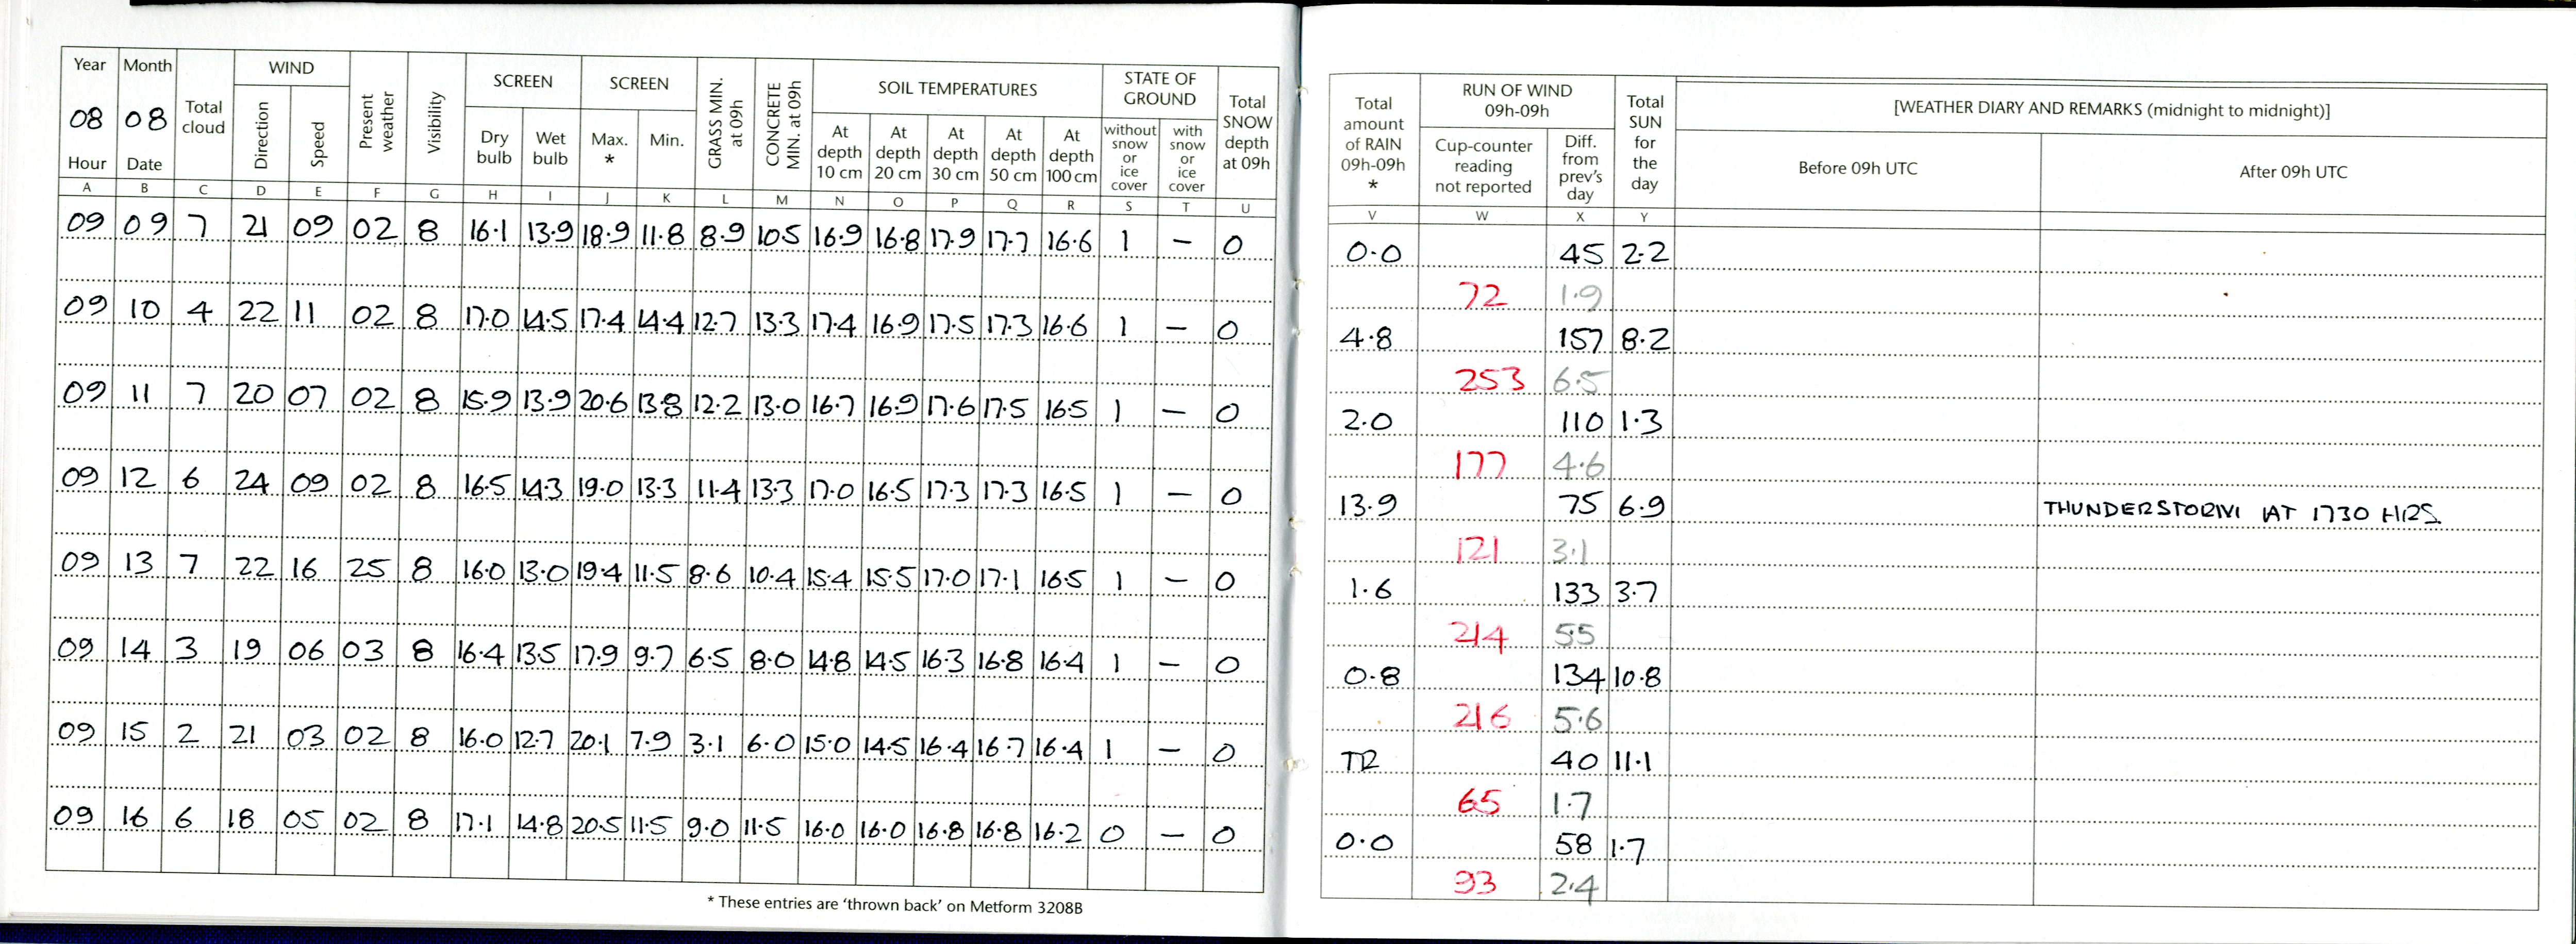 Year Month Total cloud WIND Present weather Visibility SCREEN SCREEN GRASS MIN. at 09h CONCRETE MIN. at 09h SOIL TEMPERATURES STATE OF GROUND Total SNOW depth at 09h
08 08 Direction Speed Dry bulb Wet bulb Max. * Min. At depth 10 cm At depth 20 cm At depth 30 cm At depth 50 cm At depth 100 cm without snow or ice cover with snow or ice cover
Hour Date
A B C D E F G H I J K L M N O P Q R S T U
09 09 7 21 09 02 8 16.1 13.9 18.9 11.8 8.9 10.5 16.9 16.8 17.9 17.7 16.6 1 – 0
09 10 4 22 11 02 8 17.0 14.5 17.4 14.4 12.7 13.3 17.4 16.9 17.5 17.3 16.6 1 – 0
09 11 7 20 07 02 8 15.9 13.9 20.6 13.8 12.2 13.0 16.7 16.9 17.6 17.5 16.5 1 – 0
09 12 6 24 09 02 8 16.5 14.3 19.0 13.3 11.4 13.3 17.0 16.5 17.3 17.3 16.5 1 – 0
09 13 7 22 16 25 8 16.0 13.0 19.4 11.5 8.6 10.4 15.4 15.5 17.0 17.1 16.5 1 – 0
09 14 3 19 06 03 8 16.4 13.5 17.9 9.7 6.5 8.0 14.8 14.5 16.3 16.8 16.4 1 – 0
09 15 2 21 03 02 8 16.0 12.7 20.1 7.9 3.1 6.0 15.0 14.5 16.4 16.7 16.4 1 – 0
09 16 6 18 05 02 8 17.1 14.8 20.5 11.5 9.0 11.5 16.0 16.0 16.8 16.8 16.2 0 – 0
* These entries are 'thrown back' on Metform 3208B
Total amount of RAIN 09h-09h * RUN OF WIND 09h-09h Total SUN for the day [WEATHER DIARY AND REMARKS (midnight to midnight)]
Cup-counter reading not reported Diff. from prev's day Before 09h UTC After 09h UTC
V W X Y
0.0 45 2.2
72 1.9
4.8 157 8.2
253 6.5
2.0 110 1.3
177 4.6
13.9 75 6.9 THUNDERSTORM AT 1730 HRS.
121 3.1
1.6 133 3.7
214 5.5
0.8 134 10.8
216 5.6
TR 40 11.1
65 1.7
0.0 58 1.7
93 2.4